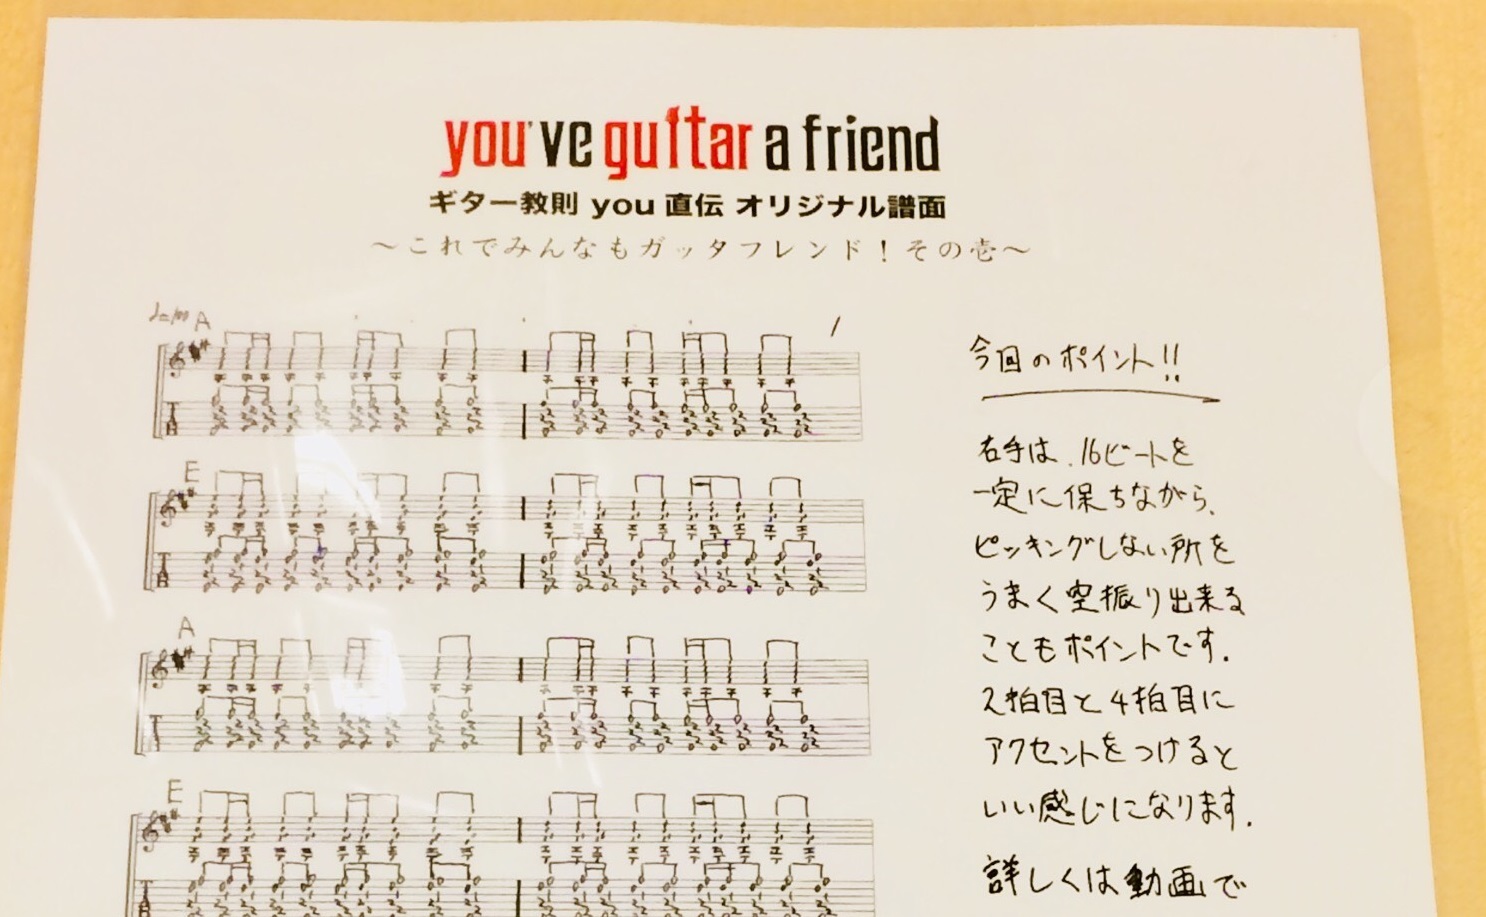 you've guitar a friend
ギター教則 you 直伝 オリジナル譜面
～これでみんなもガッタフレンド！その壱～
A
今回のポイント!!
右手は、16ビートを
一定に保ちながら、
ピッキングしない所を
うまく空振り出来る
こともポイントです.
2拍目と4拍目に
アクセントをつけると
いい感じになります.
詳しくは動画で
E
A
E